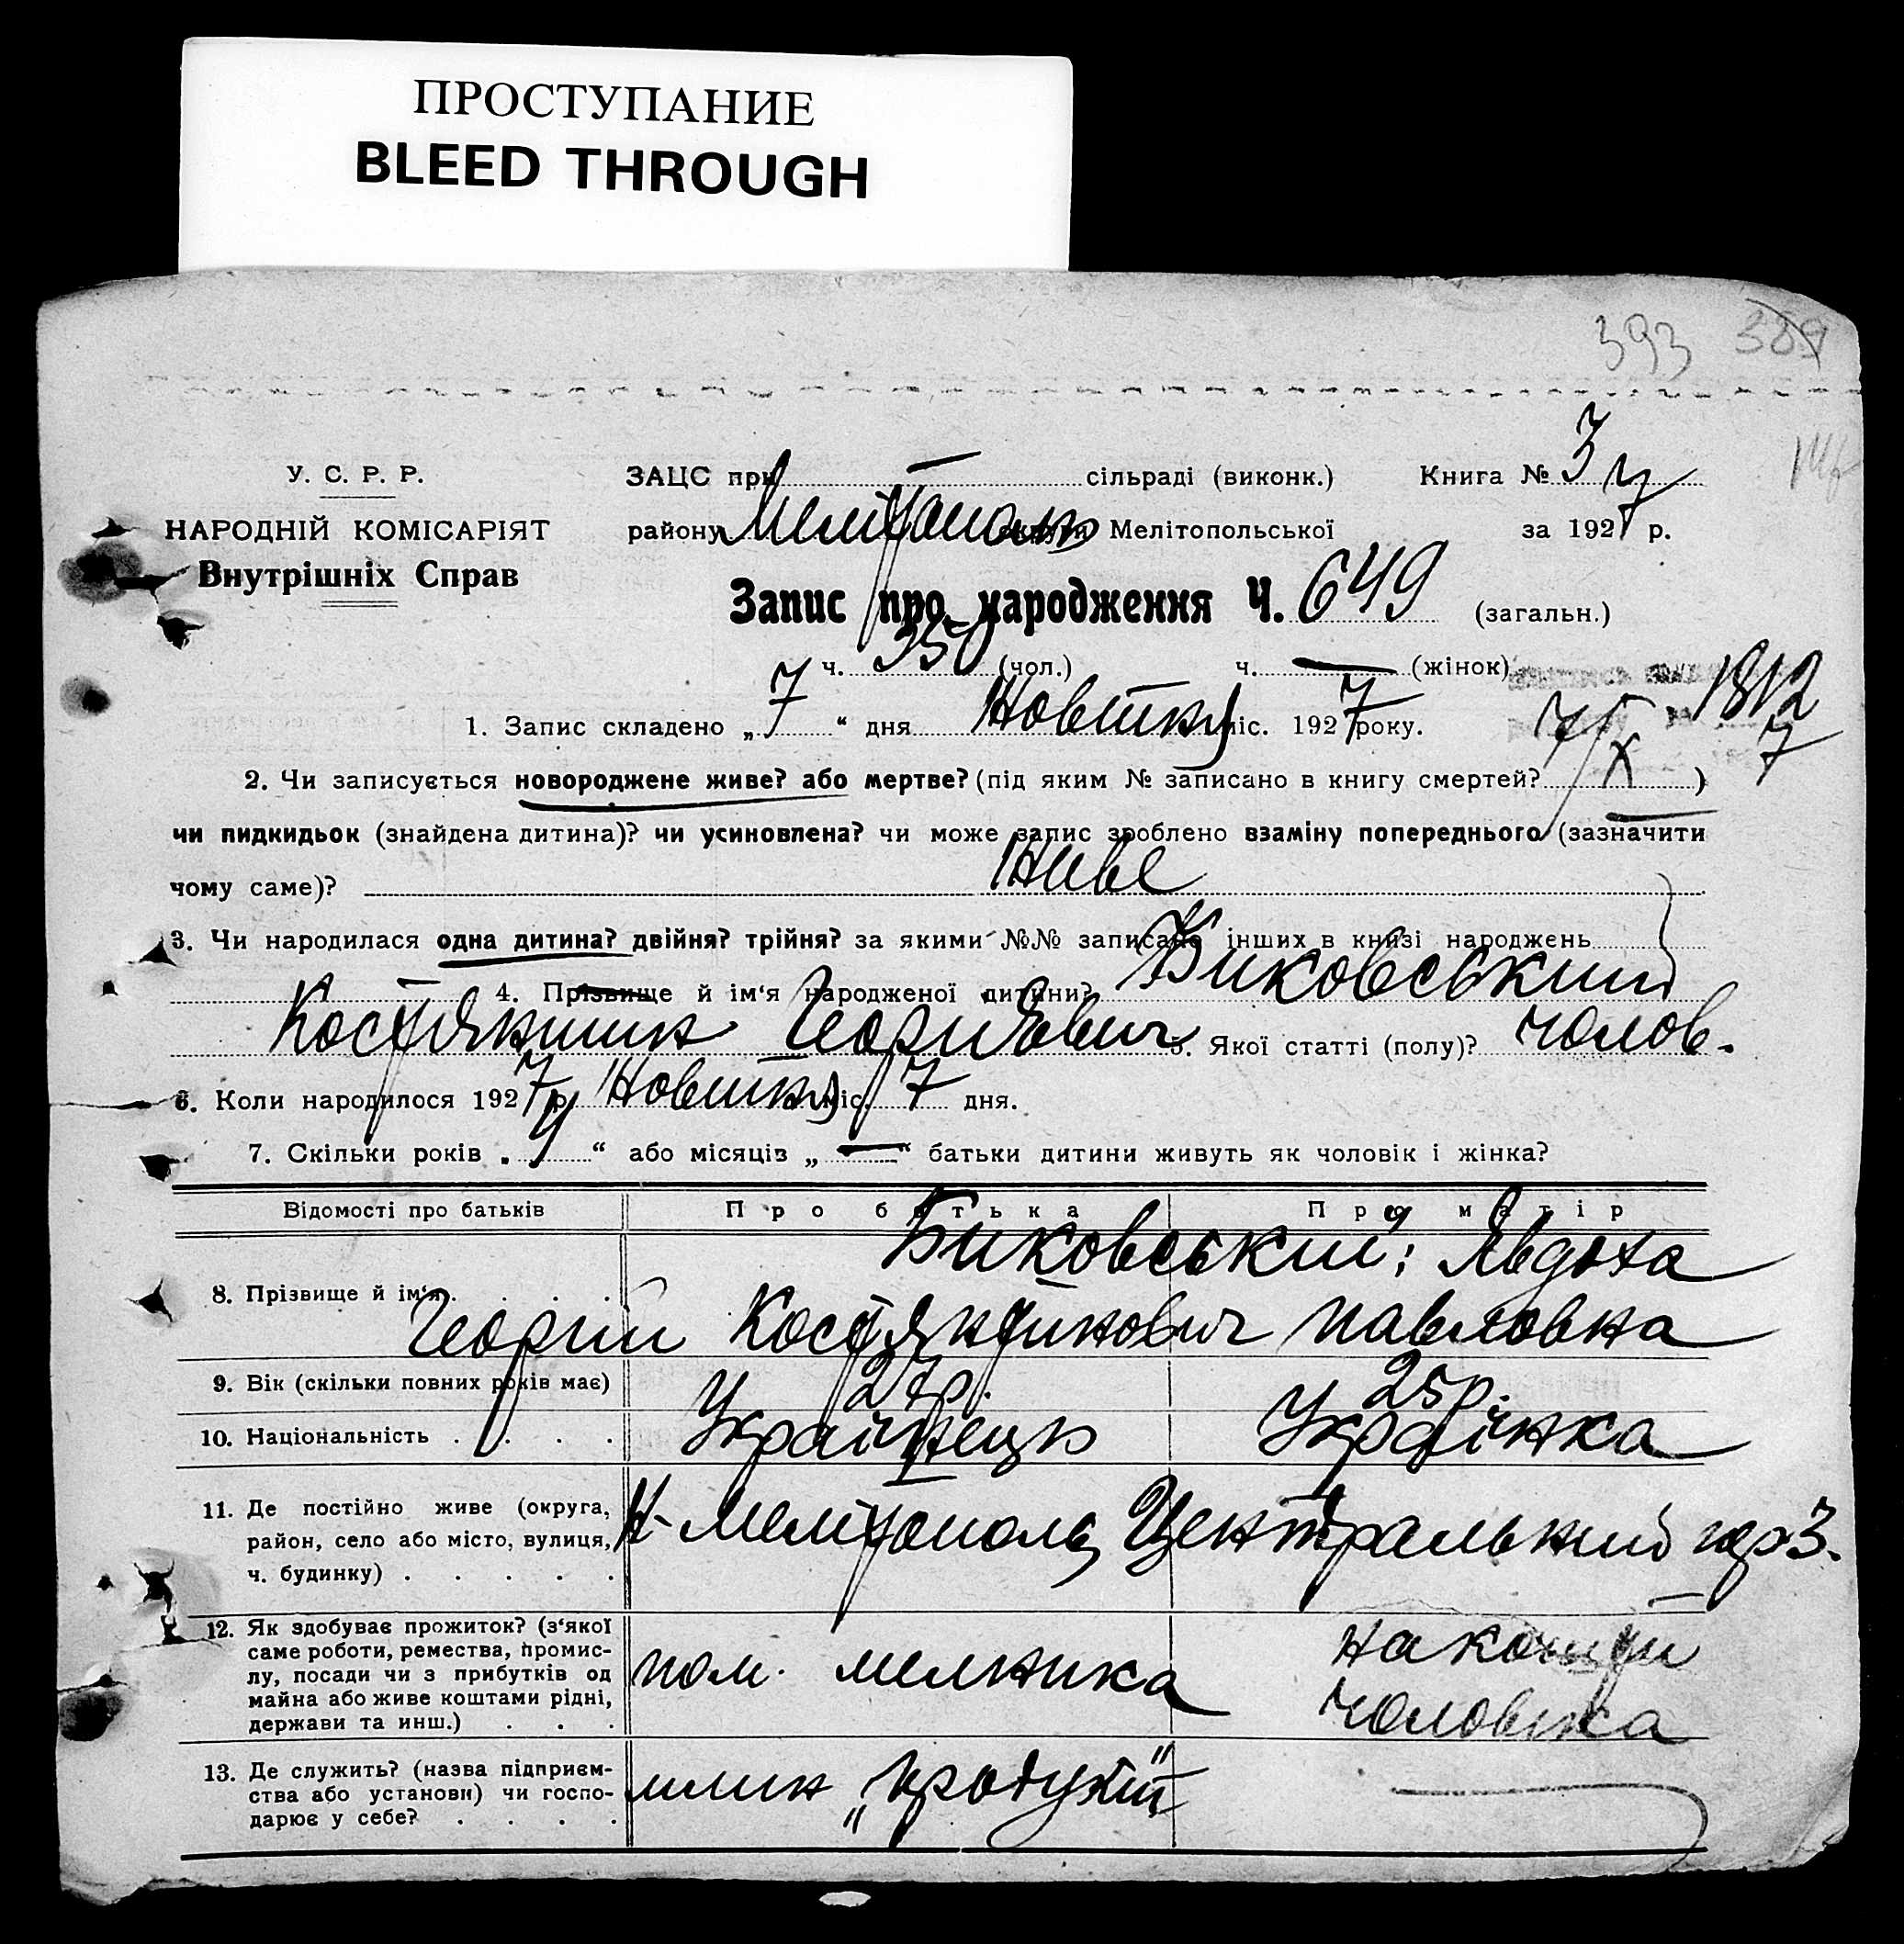 ПРОСТУПАНИЕ
BLEED THROUGH
393 389
У. С. Р. Р.
НАРОДНІЙ КОМІСАРІЯТ
Внутрішніх Справ
ЗАЦС при сільраді (виконк.) Книга № 3
району Мелітополь округи Мелітопольської за 1927 р.
Запис про народження Ч. 649 (загальн.)
ч. 350 (чол.) ч. — (жінок)
1. Запис складено „7“ дня Новтня міс. 1927 року.
7/X 1812
7
2. Чи записується новороджене живе? або мертве? (під яким № записано в книгу смертей? )
чи пидкидьок (знайдена дитина)? чи усиновлена? чи може запис зроблено взаміну попереднього (зазначити
чому саме)? Живе
3. Чи народилася одна дитина? двійня? трійня? за якими №№ записано інших в книзі народжень
4. Прізвище й ім‘я народженої дитини? Биковський
Костянтин Георгіевич 5. Якої статті (полу)? чолов.
6. Коли народилося 1927 р. Жовтня міс. 7 дня.
7. Скільки років „4“ або місяців „—“ батьки дитини живуть як чоловік і жінка?
Відомості про батьків Про батька Про матір
8. Прізвище й ім‘я . . . .
Биковський; Явдоха
Георгій Костянтинович Павловна
9. Вік (скільки повних років має) 27р. 25р.
10. Національність . . . . Українець Українка
11. Де постійно живе (округа,
район, село або місто, вулиця,
ч. будинку) . . . . .
Мелітополь, Центральний 3.
12. Як здобуває прожиток? (з‘якої
саме роботи, ремества, промис-
лу, посади чи з прибутків од
майна або живе коштами рідні,
держави та инш.) . . .
пом. мелника
на кошти
чоловіка
13. Де служить? (назва підприєм-
ства або установи) чи госпо-
дарює у себе? . . . .
млин „продукт“ —